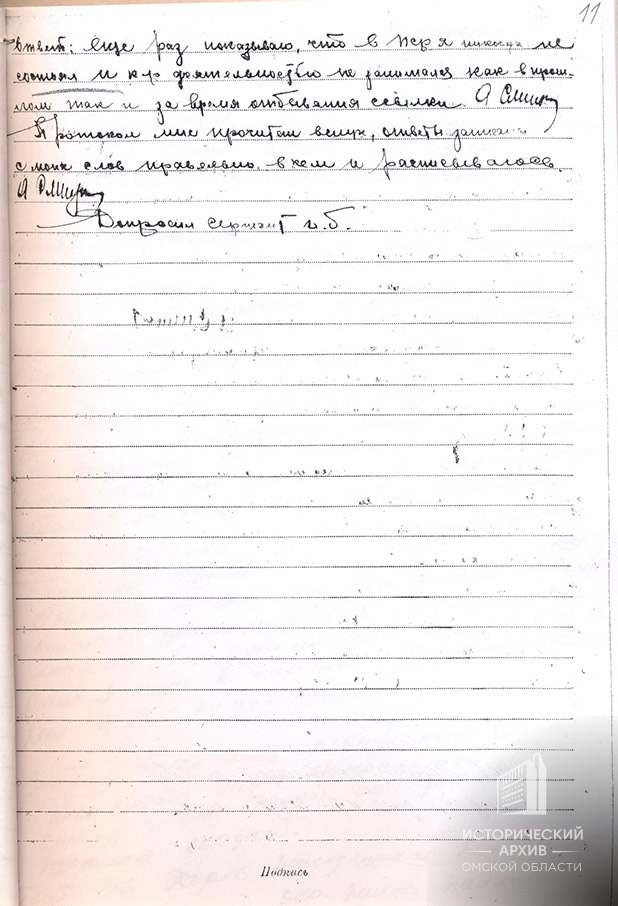 11
ответ: Еще раз показываю, что в ПСР я никогда не
состоял и к-р деятельностью не занимался как в прош-
лом так и за время отбывания ссылки
Протокол мне прочитан вслух, ответы записаны
с моих слов правильно. в чем и расписываюсь.
Допросил сержант г. б.
Подпись
ИСТОРИЧЕСКИЙ
АРХИВ
ОМСКОЙ ОБЛАСТИ